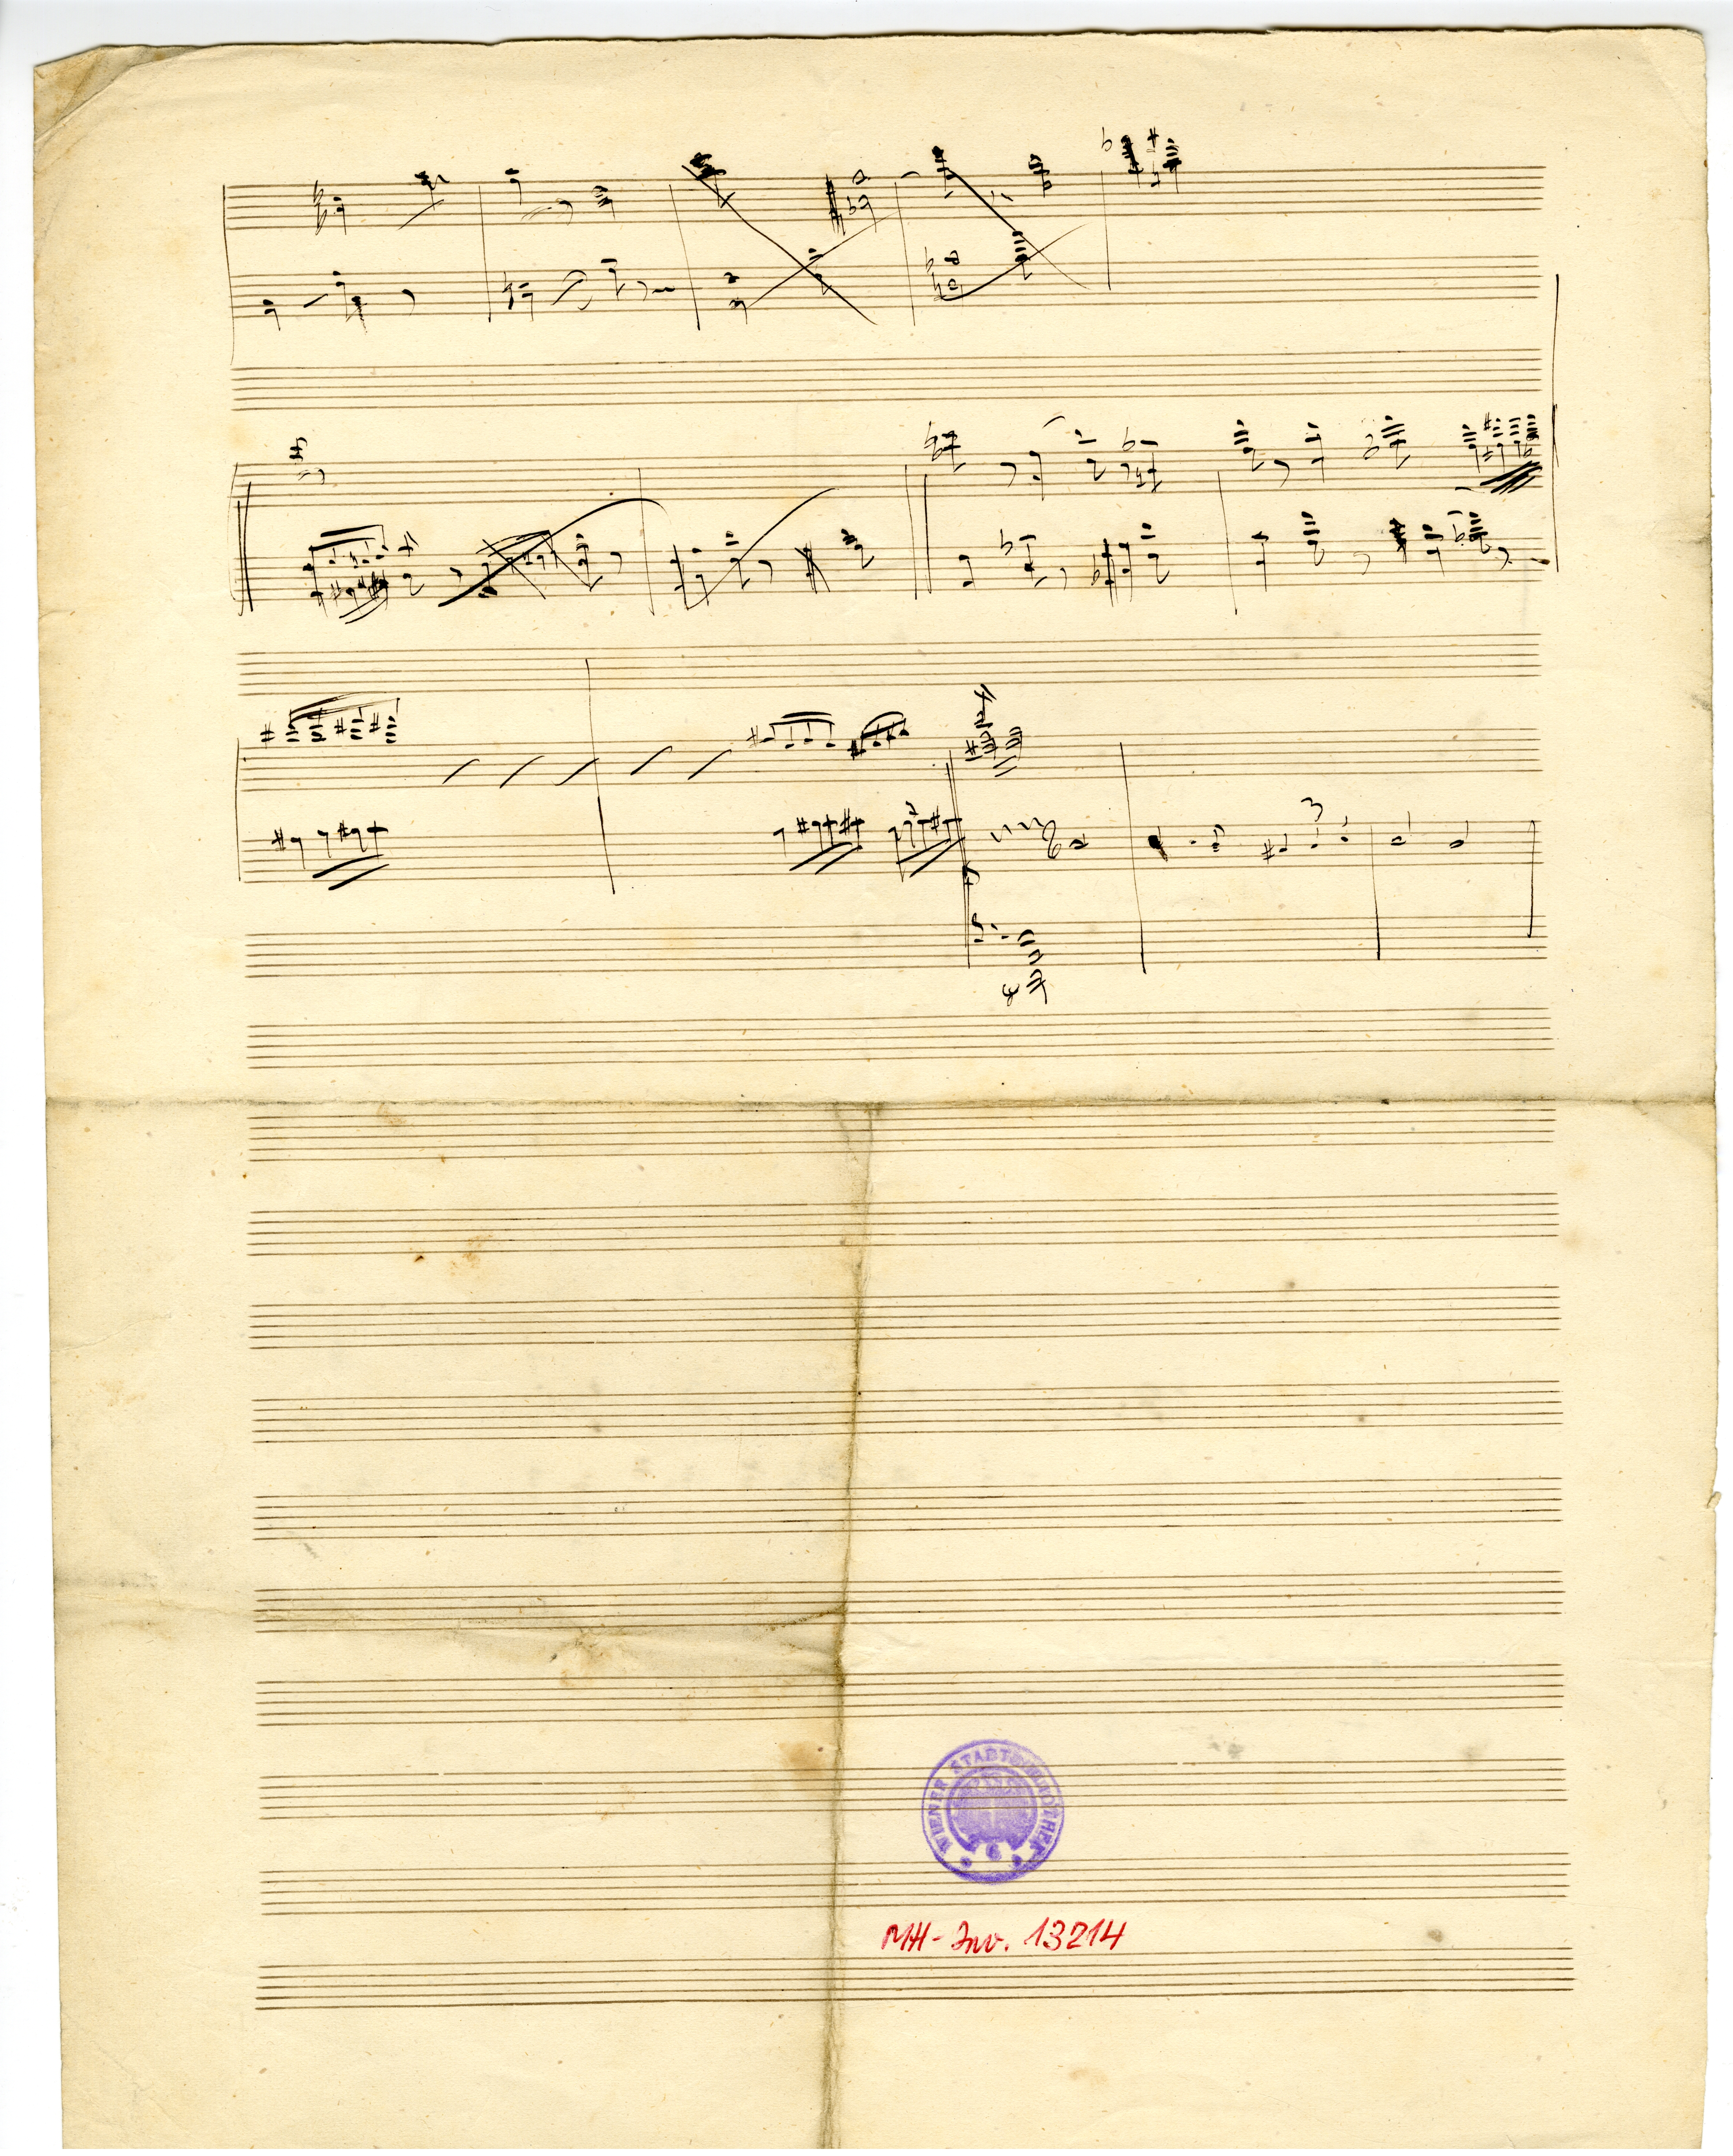 3
WIENER STADTBIBLIOTHEK
MH-Inv. 13214